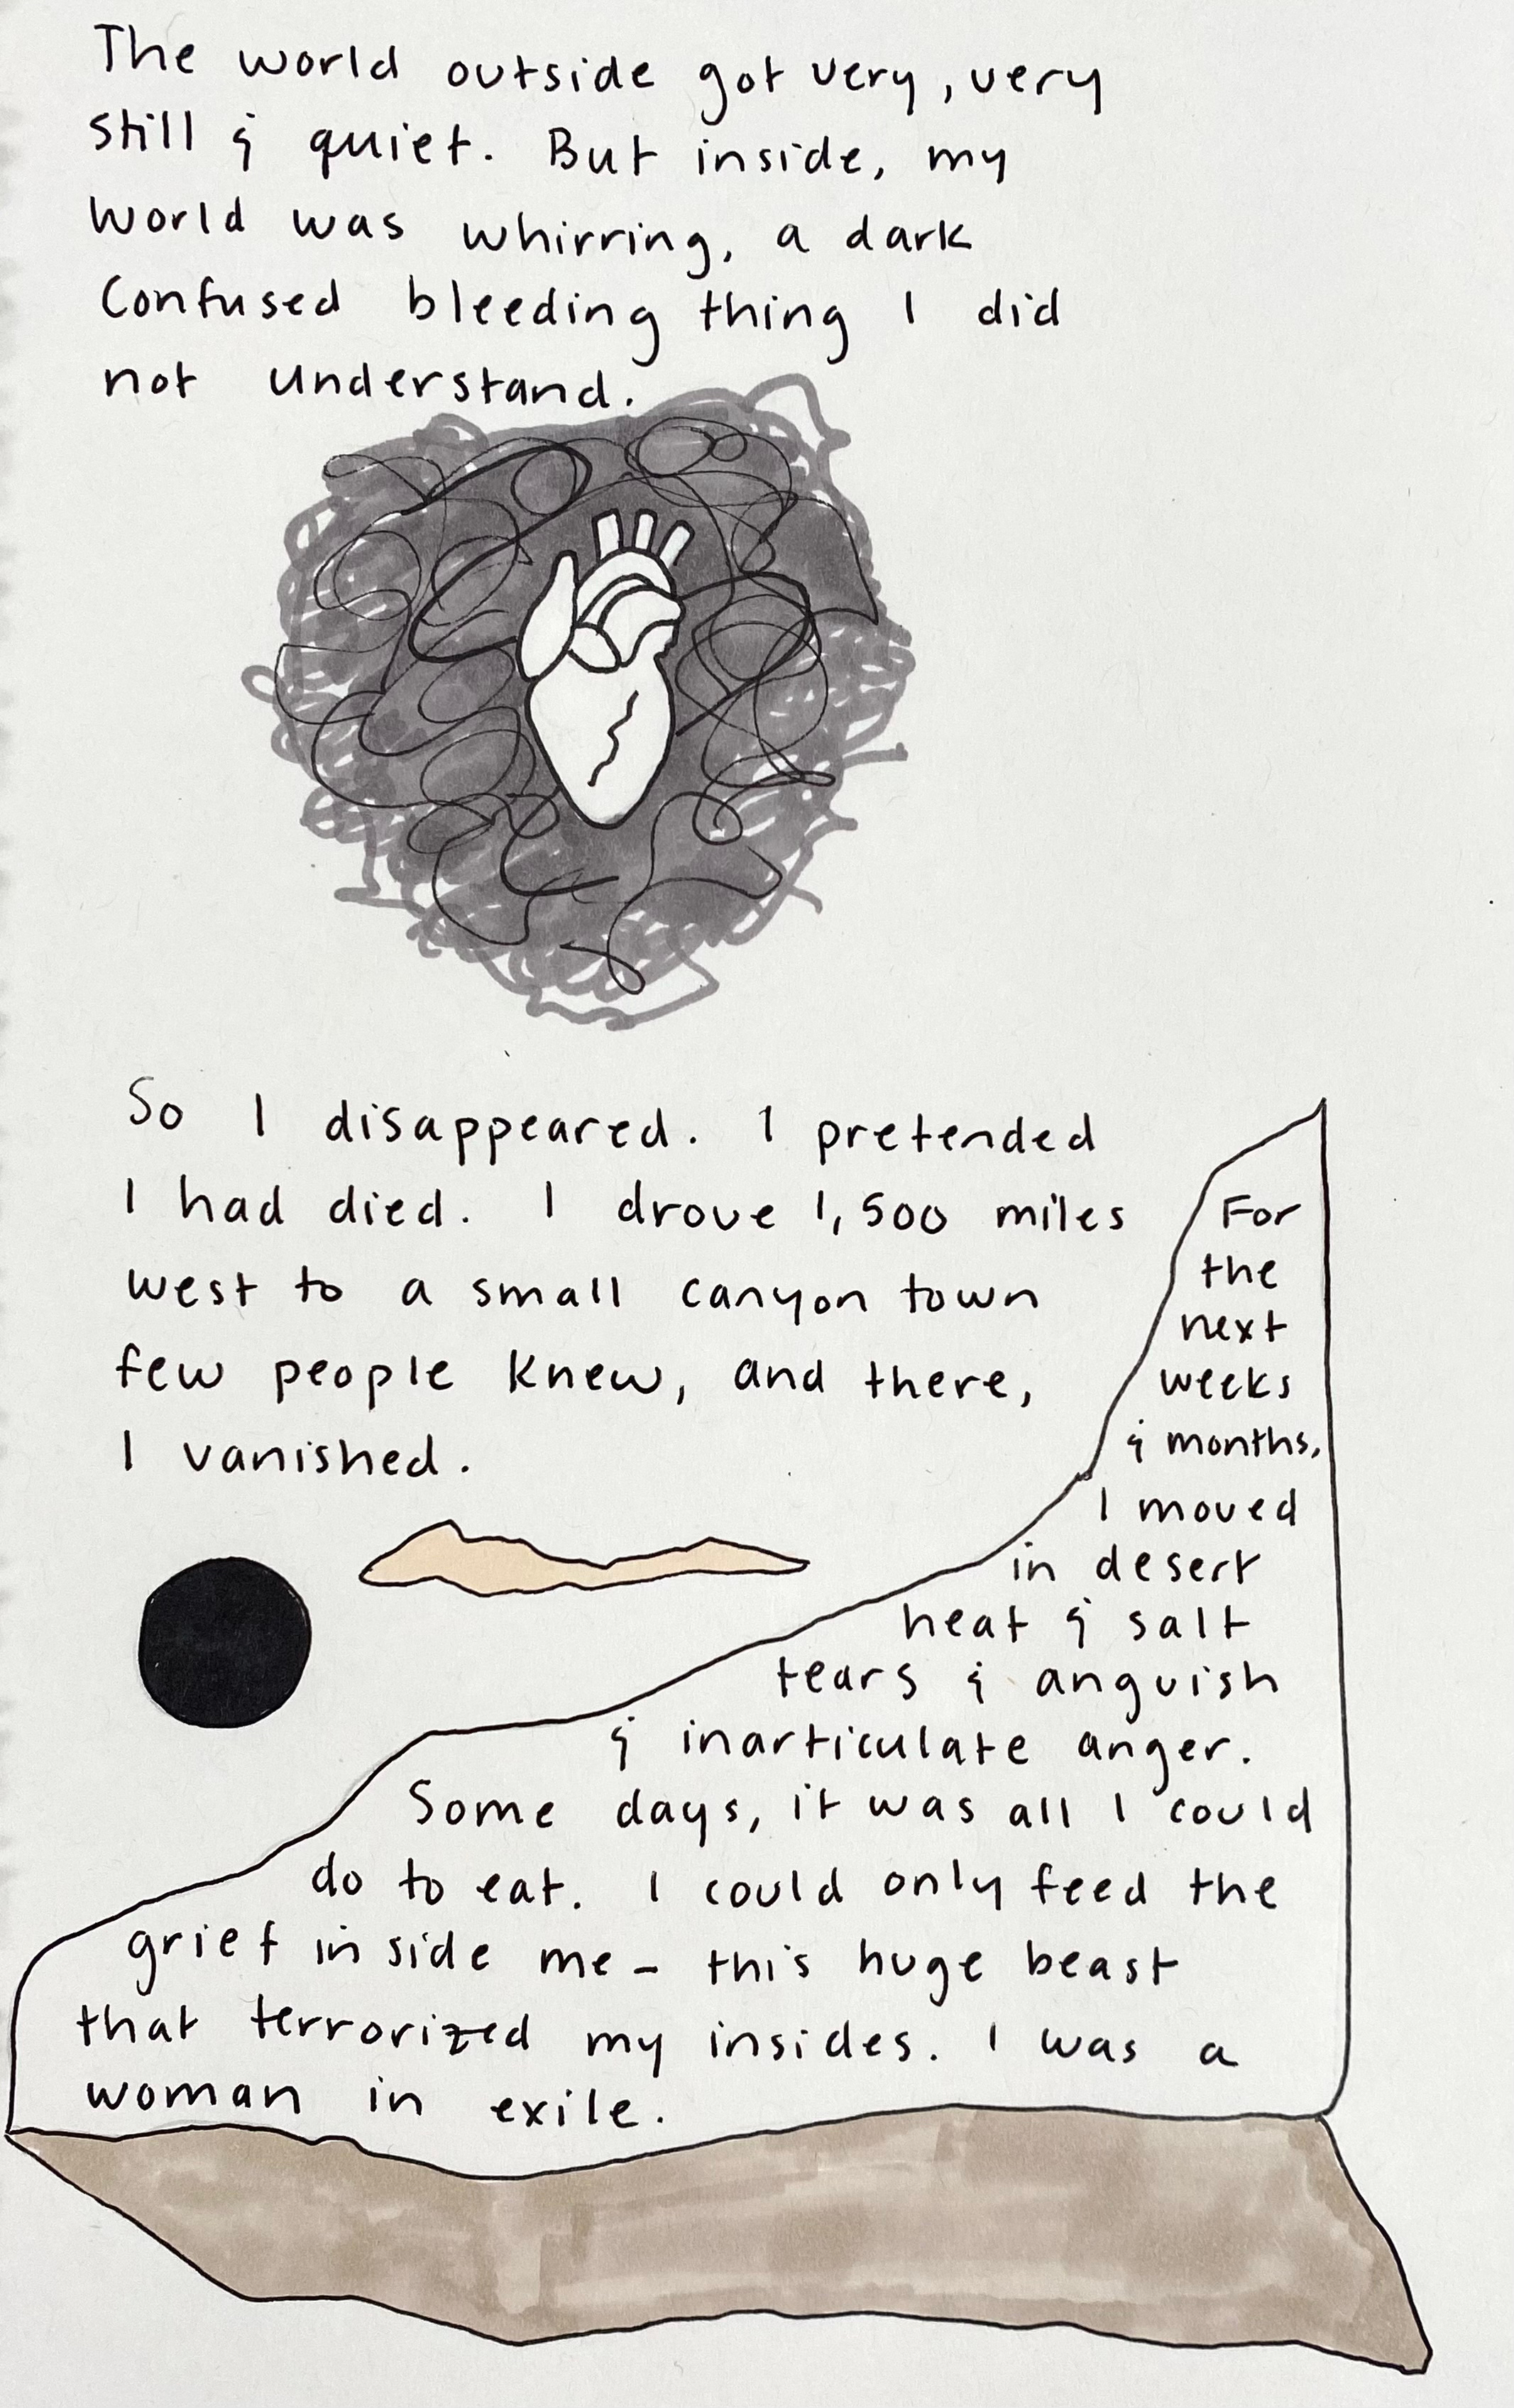 The world outside got very, very
still & quiet. But inside, my
world was whirring, a dark
confused bleeding thing I did
not understand.
So I disappeared. I pretended
I had died. I drove 1,500 miles
west to a small canyon town
few people knew, and there,
I vanished.
For
the
next
weeks
& months,
I moved
in desert
heat & salt
tears & anguish
& inarticulate anger.
Some days, it was all I could
do to eat. I could only feed the
grief inside me - this huge beast
that terrorized my insides. I was a
woman in exile.